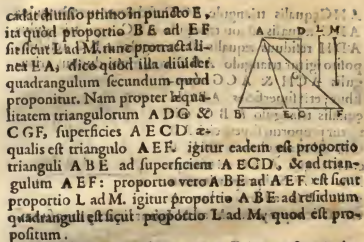 cadat diuisio primo in puncto E,
ita quòd proportio B E ad E F
sit sicut L ad M. tunc protracta li-
nea E A, dico quòd illa diuidet
quadrangulum secundum quòd
proponitur. Nam propter æqua-
litatem triangulorum A D G &
C G F, superficies A E C D æ-
qualis est triangulo A E F. igitur eadem est proportio
trianguli A B E ad superficiem A E C D, & ad trian-
gulum A E F: proportio vero A B E ad A E F est sicut
proportio L ad M. igitur proportio A B E ad residuum
quadranguli est sicut proportio L ad M, quod est pro-
positum.
A D L M
B E C F